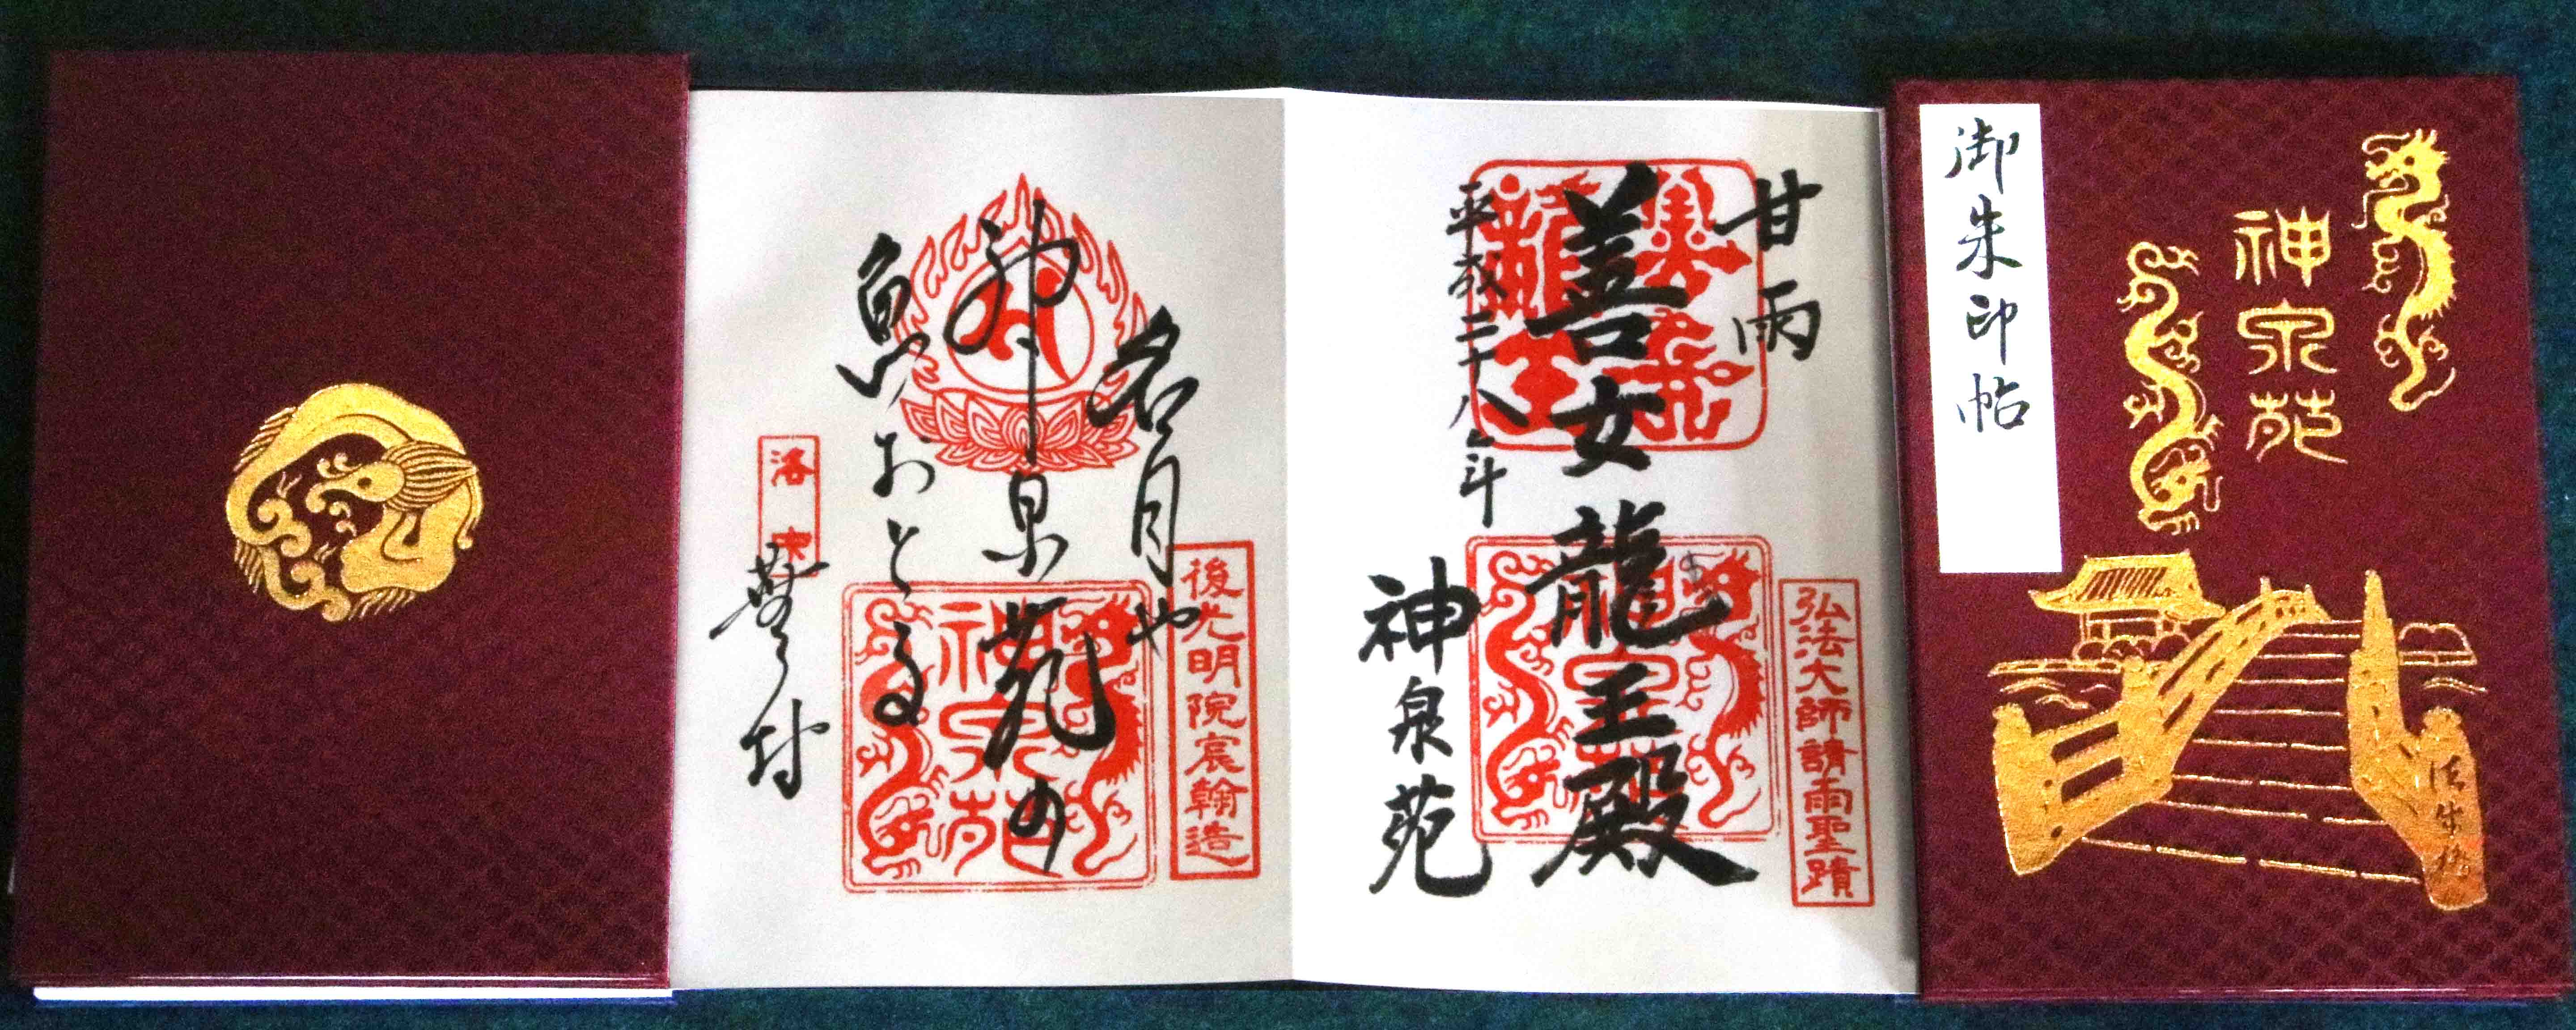 御朱印帖
神泉苑
法成橋
甘雨
善女龍王殿
平成二十八年
神泉苑
弘法大師請雨聖蹟
名月や
神泉苑の
魚おとる
蕪村
後光明院宸翰造
神泉苑